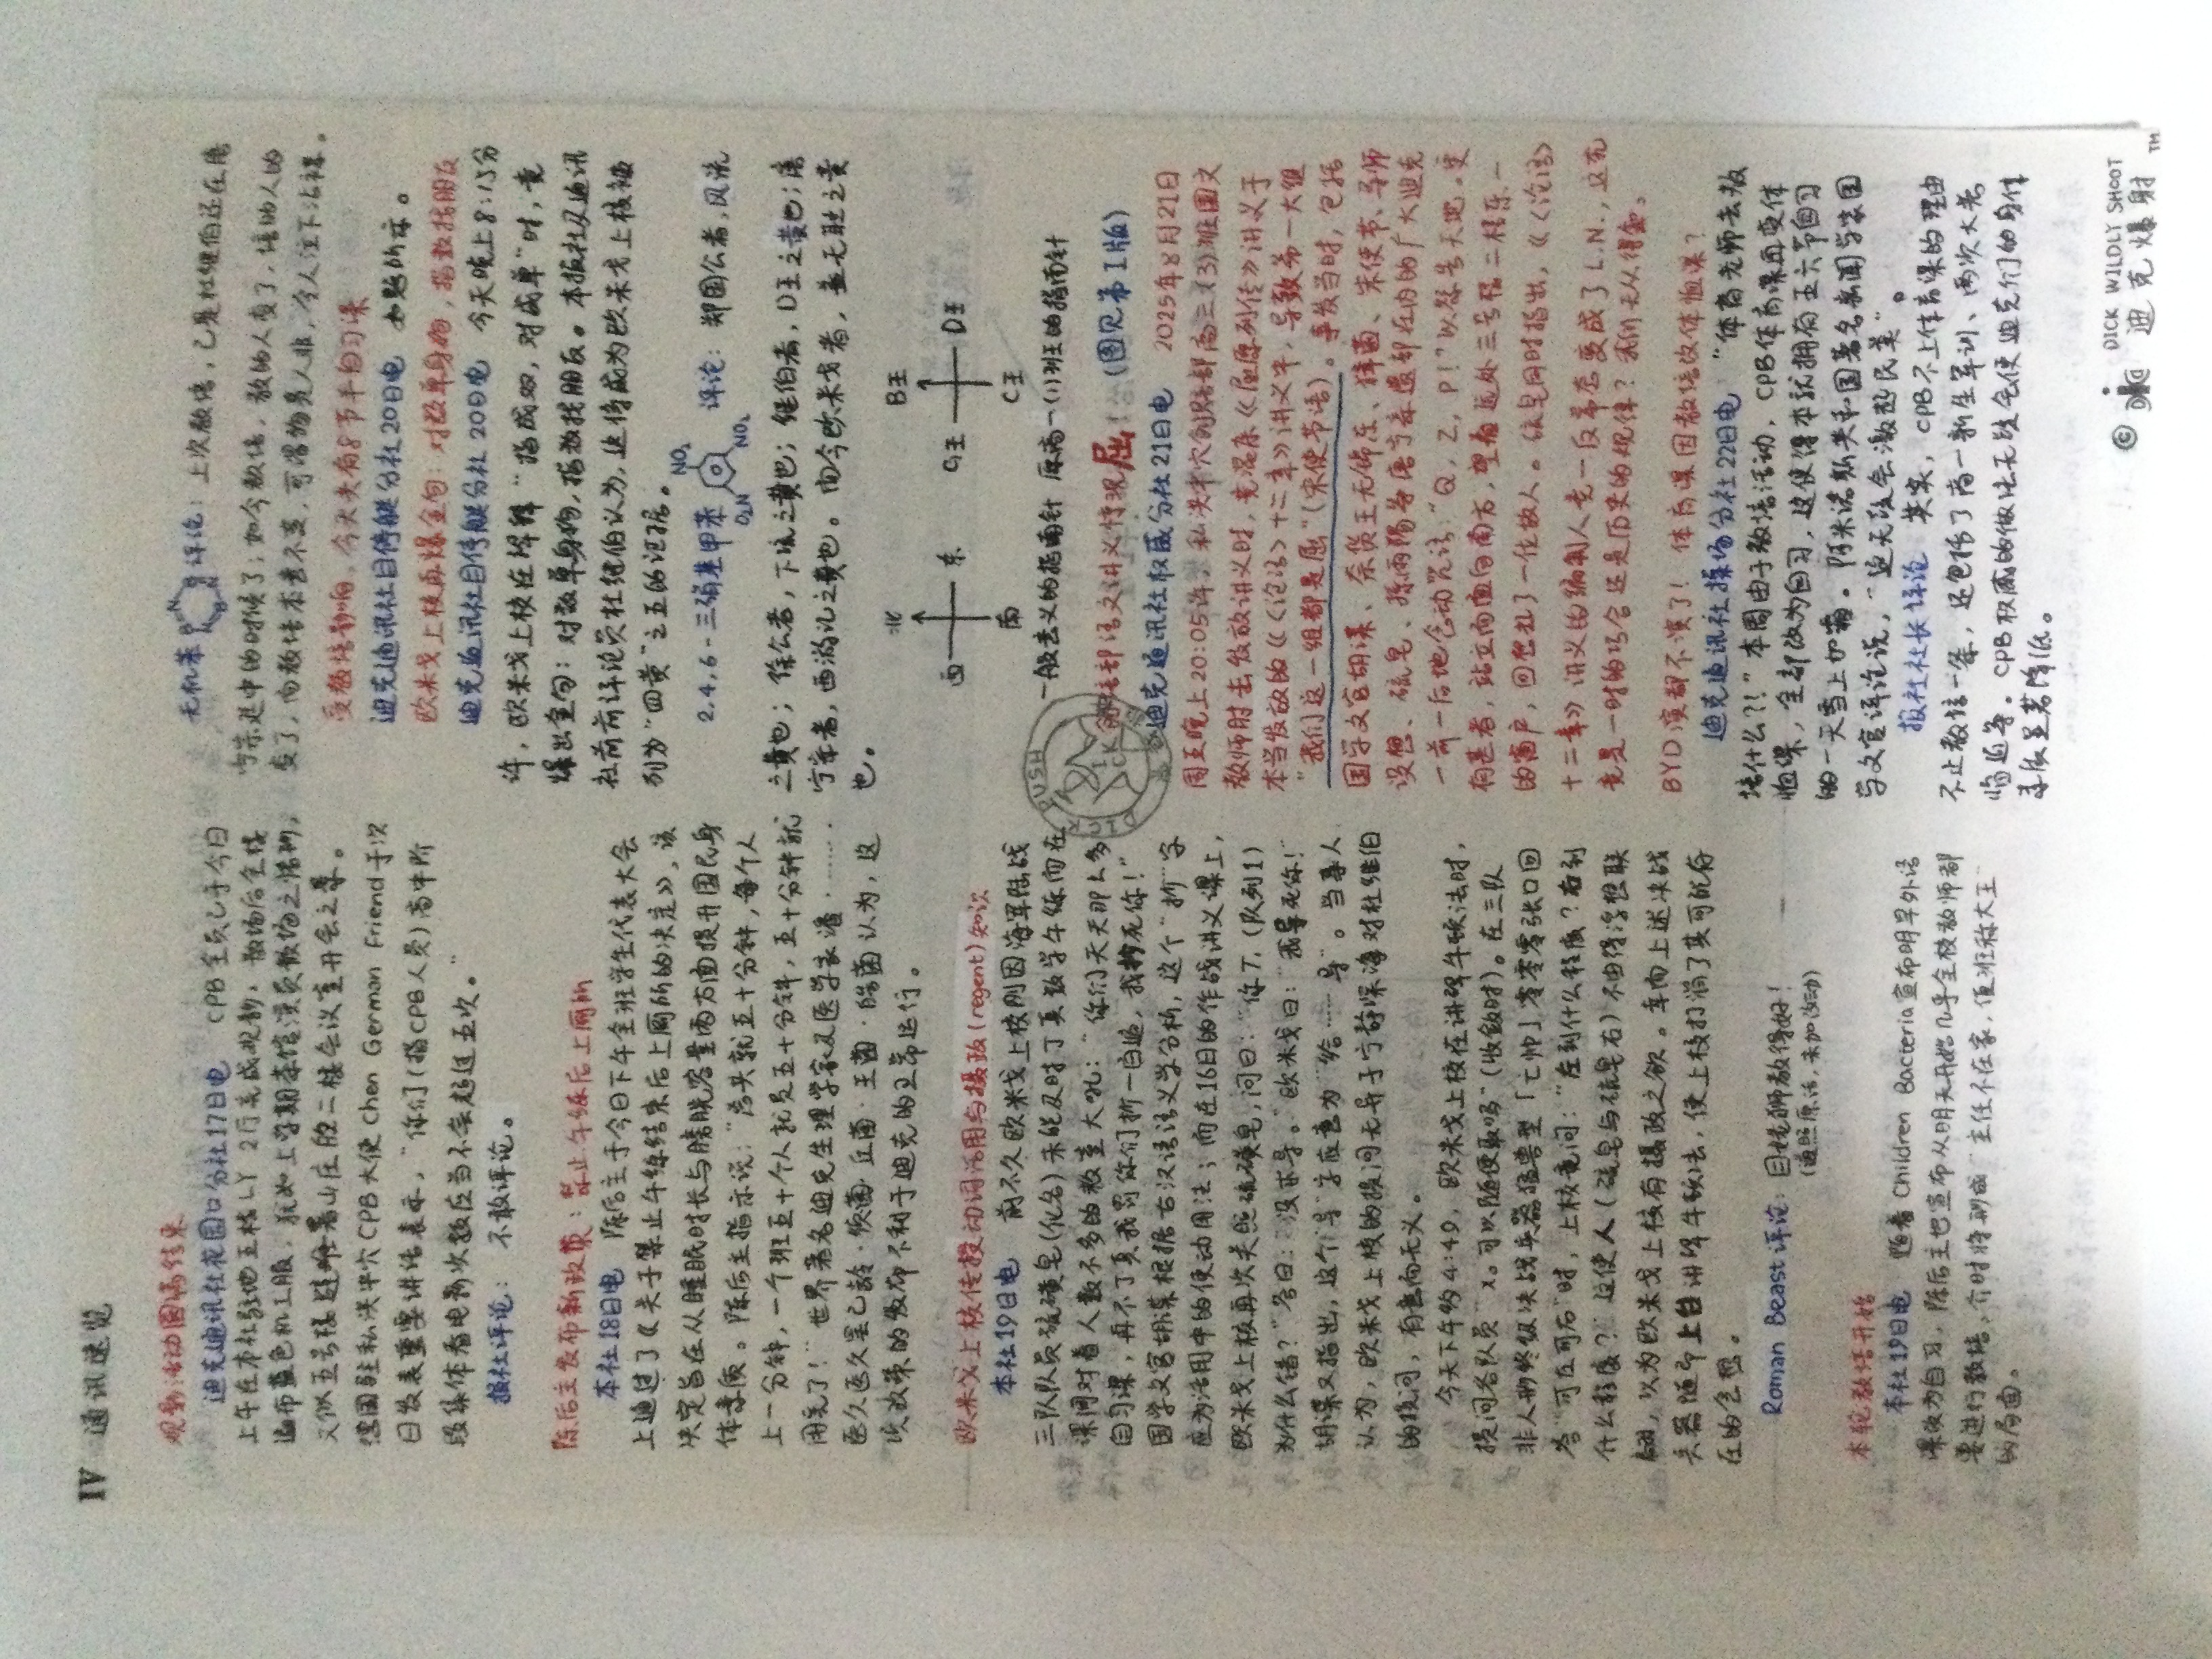 IV 通讯速览
观影活动圆满结束
迪克通讯社花园口分社17日电 CPB全员已于今日
上午在本社驻地五楼LY 2厅完成观影，散场后全楼
遍布蓝色机工服，犹如上学期茶馆演员散场之情形，
又似五号楼 山庄 二楼会议室开会之景。
德国驻私洪中穴CPB大使Chen German Friend于次
日发表重要讲话表示，“你们(指CPB人员)高中阶
段集体看电影次数应当不会超过五次。”
报社评论： 不敢评论。
陈后主发布新政策：禁止午练后上厕所
本社18日电 陈后主于今日下午全班学生代表大会
上通过了《关于禁止午练结束后上厕所的决定》，该
决定旨在从睡眠时长与膀胱容量两方面提升国民身
体素质。陈后主指示说：“总共就五十分钟，每个人
上一分钟，一个班五十个人就是五十分钟，五十分钟就
用完了！”世界著名迪克生理学家及医学家潘·……·
医久医久罢己龄·须菌·丘菌·王菌·皓菌认为，这
项政策的发布不利于迪克的卫常运行。
欧米戈上校传授动词活用与摄政(regent)知识
本社19日电 前不久欧米戈上校刚因海军陆战
三队队员硫磺皂(化名)未能及时丁真数学午练而在
课间对着人数不多的教室大吼：“你们天天那么多
自习课，再不丁真我罚你们抄一百遍，我抄死你！”
国学文官胡谋根据古汉语语义学分析，这个“抄”字
应为活用中的使动用法；而在16日的作战讲义课上，
欧米戈上校再次关照硫磺皂，问曰：“你T.(队列1)
为什么错？”答曰：“没求导。”欧米戈曰：“我导死你！”
胡谋又指出，这个“导”字应意为“给……导”。当事人
认为，欧米戈上校的提问无异于宁静深海对杜继伯
的提问，有意而无义。
今天下午约4:49，欧米戈上校在讲解牛顿法时，
提问各队员“x₀可以随便取吗”(收敛时)。在三队
非人形终级决战兵器猛兽型「亡帅」零零零张口回
答“可左可右”时，上校竟问：“左到什么程度？右到
什么程度？”这使人(硫皂与硫皂右)不由得浮想联
翩，以为欧米戈上校有摄政之欲。幸而上述决战
兵器随即上台讲解牛顿法，使上校打消了其可能存
在的念想。
Roman Beast评论：目姥狮教得好！
(遵照原话，未加改动)
本轮教培开始
本社19日电 随着Children Bacteria宣布明早外语
课改为自习，陈后主也宣布从明天开始几乎全校教师都
要进行教培，介时将形成“主任不在家，值班称大王”
的局面。
无机苯 评论：上次教培，已是杜继伯还在唐
宁宗延中的时候了；如今教培，教的人变了，培的人的
变了，而教培本意不变，可谓物是人非，令人泣下沾襟。
受教培影响，今天共有8节半自习课
迪克通讯社目停艇分社20日电 如题所示。
欧米戈上校再爆金句：对数单身狗，指数找朋友
迪克通讯社目停艇分社20日电 今天晚上8:15分
许，欧米戈上校在解释“指成双，对成单”时，竟
爆出金句：对数单身狗，指数找朋友。本报社及通讯
社前前评论员杜继伯认为，这将成为欧米戈上校被
列为“四黄”之五的证据。
2,4,6-三硝基甲苯 NO₂ O₂N NO₂ 评论：郑国公者，风流
之黄也；徐公者，下流之黄也；继伯者，D王之黄也；唐
宁宗者，西游记之黄也。而今欧米戈者，盖无耻之黄
也。
北 西 东 南
B王 G王 D王 C王
一般意义的指南针 原高一(1)班的指南针
创培部语文讲义惊现屈！ (图见第I版)
迪克通讯社权威分社21日电 2025年8月21日
周五晚上20:05许，私洪中穴创培部高三(3)班国文
教师肘击发放讲义时，竟混杂《屈原列传》讲义于
本当发放的《〈论语〉十二章》讲义中，导致第一大组
“我们这一组都是屈”(宋使节语)。事发当时，包括
国学文官胡谋、奈货王无锦东、 菌、宋使节、导师
设想、硫皂、 雨阳等唐宁宗遗部在内的广大迪克
一前一后地念动咒语：“Q，Z，P！”以祭告天地。更
有甚者，站立而面向南方，望着远处三号楼二楼东一
的窗户，回想起了一位故人。硫皂同时指出，《〈论语〉
十二章》讲义的编制人竟一反常态变成了L.N.，这究
竟是一时的巧合还是历史的规律？我们无从得知。
BYD演都不演了！ 体育课因教培改体恤课？
迪克通讯社操场分社22日电 “体育老师去教
培什么？！”本周由于教培活动，CPB体育课再变体
恤课，全部改为自习，这使得本就拥有五六节自习
的一天雪上加霜。阿米诺斯共和国著名新闻学家国
学文官评论说，“这无疑会激起民愤”。
报社社长评论 其实，CPB不上体育课的理由
不止教培一条，还包括了高一新生军训、两次大考
临近等。CPB权威的做法无疑会使迪克们的身体
素质显著降低。
© DICK WILDLY SHOOT
迪克爆射 TM